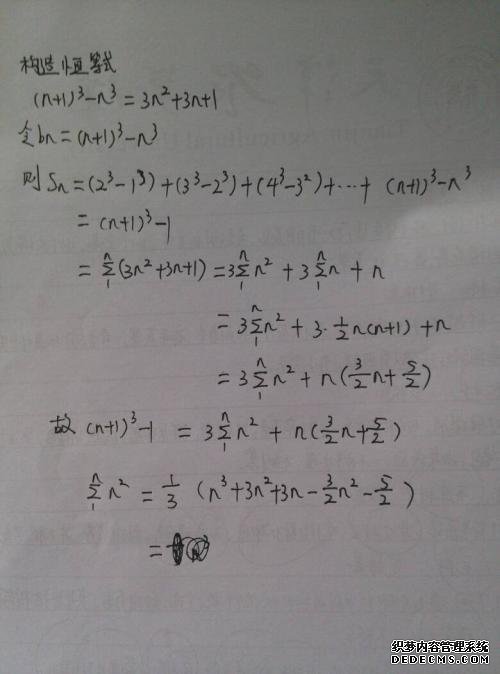 构造恒等式
(n+1)³-n³=3n²+3n+1
令bn=(n+1)³-n³
则 Sn=(2³-1³)+(3³-2³)+(4³-3²)+…+ (n+1)³-n³
=(n+1)³-1
=∑₁ⁿ(3n²+3n+1)=3∑₁ⁿn²+3∑₁ⁿn+n
=3∑₁ⁿn²+3·½n(n+1)+n
=3∑₁ⁿn²+n(3/2n+5/2)
故 (n+1)³-1 =3∑₁ⁿn²+n(3/2n+5/2)
∑₁ⁿn² =1/3 (n³+3n²+3n-3/2n²-5/2)
=
织梦内容管理系统
DEDECMS.COM